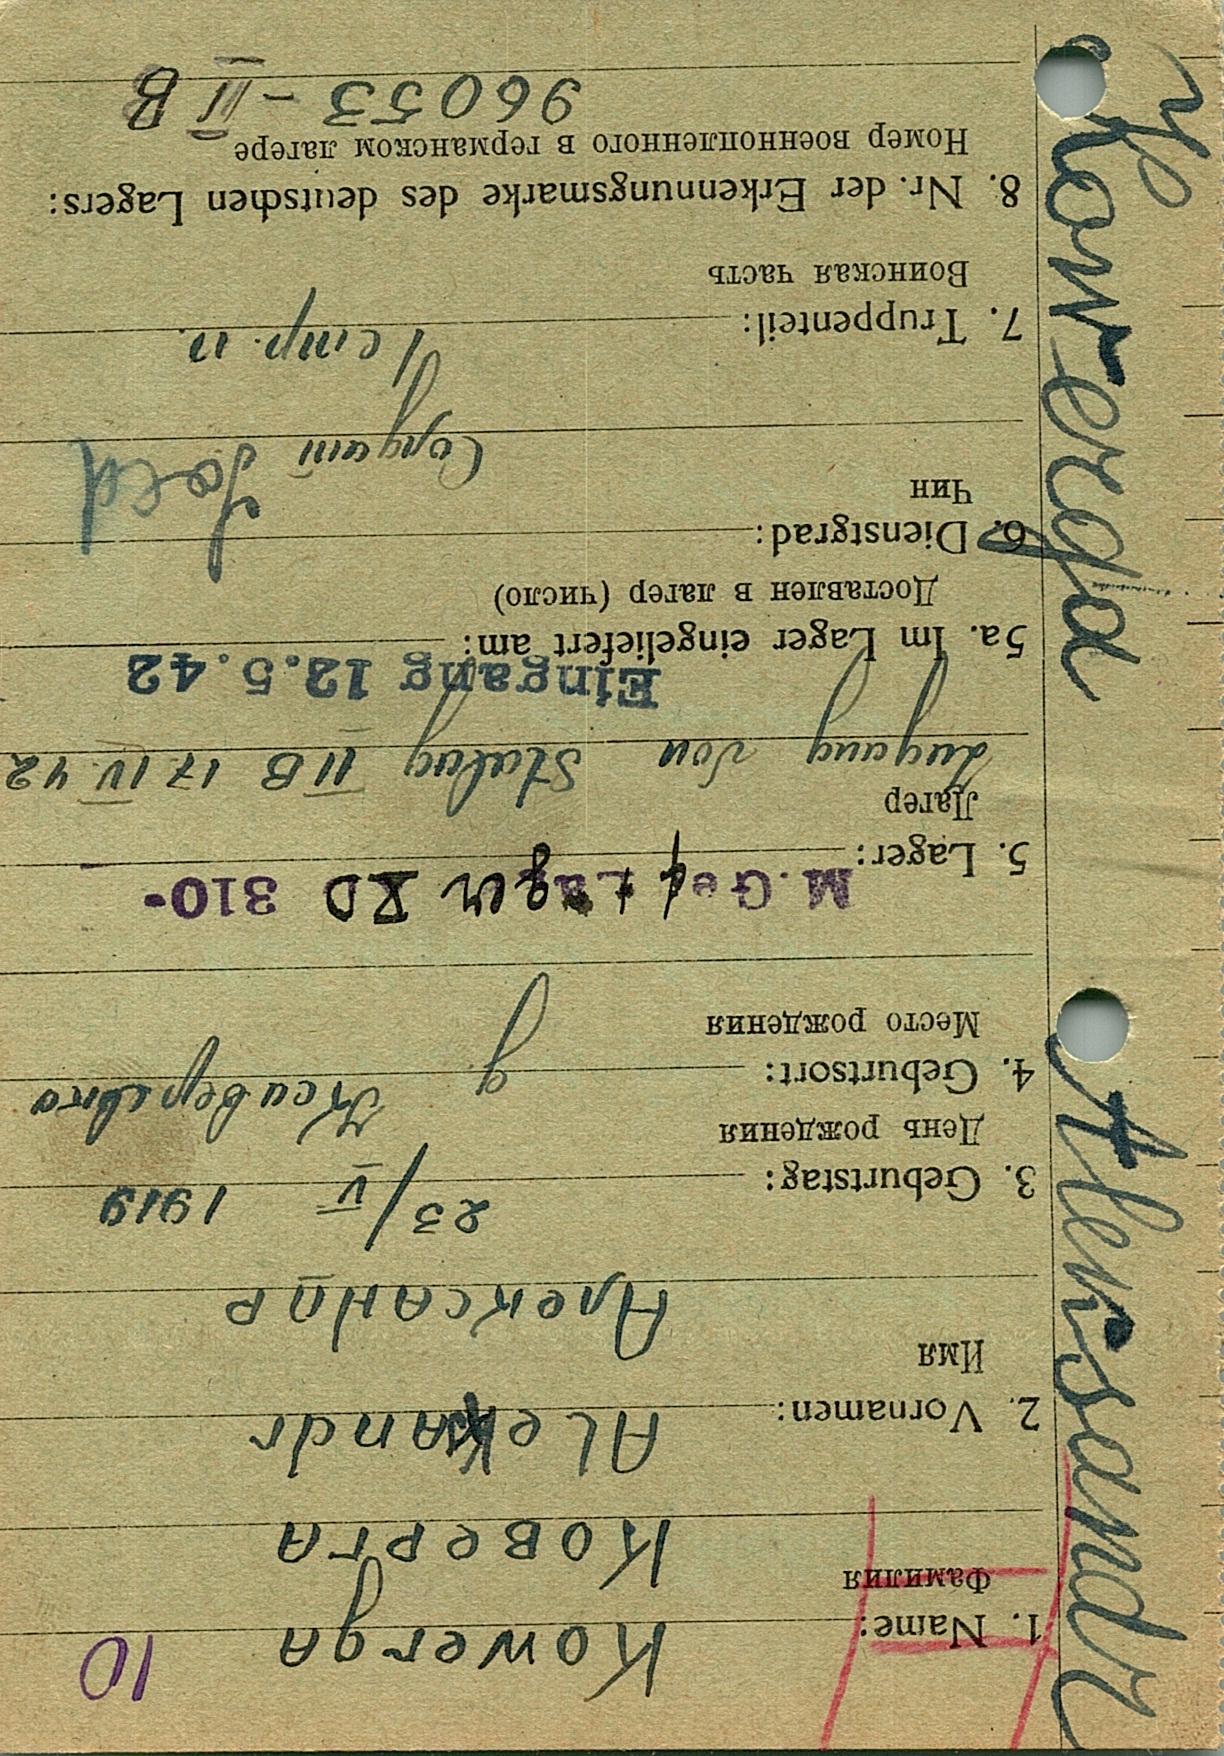 10
Kowerga
1. Name:
Фамилия
Коверга
Aleksandr
2. Vornamen:
Имя
Александр
23/V 1919
3. Geburtstag:
День рождения
4. Geburtsort:
Место рождения
M. Gef Lager XD 310-
5. Lager:
Лагер
Zugang von Stalag II B 17 IV 42
Eingang 12.5.42
5a. Im Lager eingeliefert am:
Доставлен в лагер (число)
6. Dienstgrad:
Чин
Солдат Sold
7. Truppenteil:
Воинская часть
1 стр. п.
8. Nr. der Erkennungsmarke des deutschen Lagers:
Номер военнопленного в германском лагере
96053 - II B
Kowerga
Aleksandr